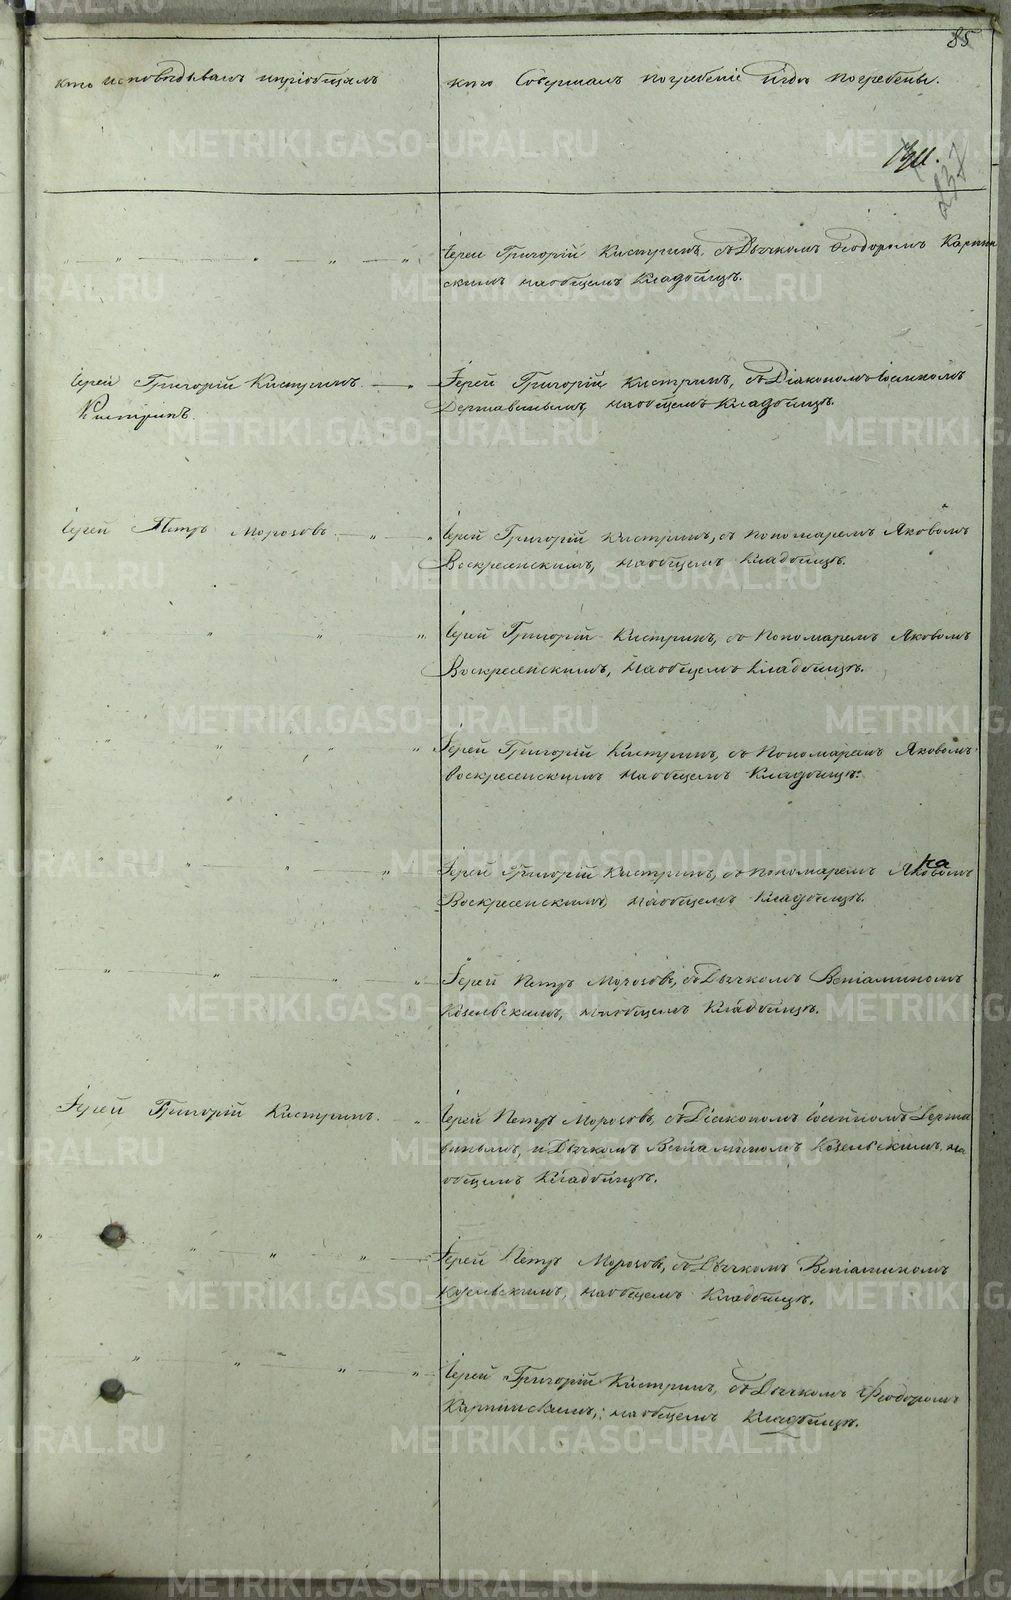 85
кто исповѣдывалъ и пріобщалъ
кто совершалъ погребеніе и гдѣ погребены.
237
Іерей Григорій Кистринъ, съ Дьячкомъ Ѳеодоромъ Карпин
скимъ на общемъ Кладбищѣ.
Іерей Григорій Кистринъ
Кистринъ.
Іерей Григорій Кистринъ, съ Діакономъ Іоанномъ
Державинымъ, на общемъ Кладбищѣ.
Іерей Петръ Морозовъ
Іерей Григорій Кистринъ, съ Пономаремъ Яковомъ
Воскресенскимъ, на общемъ Кладбищѣ.
Іерей Григорій Кистринъ, съ Пономаремъ Яковомъ
Воскресенскимъ, на общемъ Кладбищѣ.
Іерей Григорій Кистринъ, съ Пономаремъ Яковомъ
Воскресенскимъ на общемъ Кладбищѣ.
Іерей Григорій Кистринъ, съ Пономаремъ Яковомъ
Воскресенскимъ, на общемъ Кладбищѣ.
Іерей Петръ Морозовъ, съ Дьячкомъ Веніаминомъ
Козельскимъ, на общемъ Кладбищѣ.
Іерей Григорій Кистринъ.
Іерей Петръ Морозовъ, съ Діакономъ Іоанномъ Держа
винымъ, и Дьячкомъ Веніаминомъ Козельскимъ, на
общемъ Кладбищѣ.
Іерей Петръ Морозовъ, съ Дьячкомъ Веніаминомъ
Козельскимъ, на общемъ Кладбищѣ.
Іерей Григорій Кистринъ, съ Дьячкомъ Ѳеодоромъ
Карпинскимъ, на общемъ Кладбищѣ.